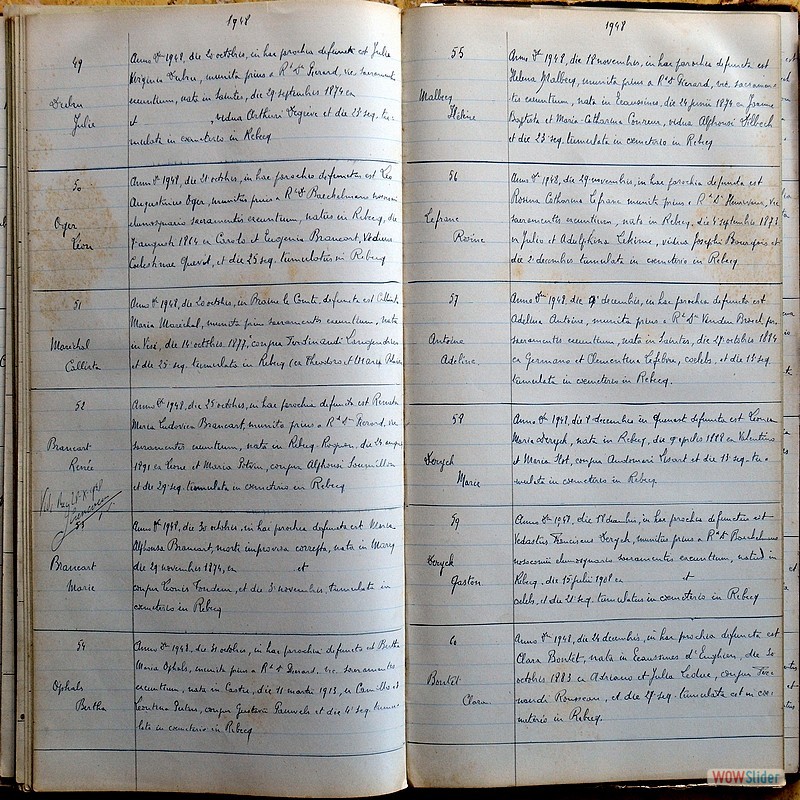 1948
49
Anno Dni 1948, die 20 octobris, in hac parochia defuncta est Julia
Virginia Dubru, munita prius a Rdo Do Pierard, vic. sacramentis
exeuntium, nata in Saintes, die 29 septembris 1874 ex
et , vidua Arthuri Degreve et die 23 seq. tu-
mulata in cœmeterio in Rebecq.
Dubru
Julie
50
Anno Dni 1948, die 21 octobris, in hac parochia defunctus est Leo
Augustinus Oger, munitus prius a Rdo Do Baeckelmans
eleemosynario sacramentis exeuntium, natus in Rebecq, die
7 augusti 1864 ex Carolo et Eugenia Brancart, viduus
Celestinae et die 25 seq. tumulatus in Rebecq
Oger
Léon
51
Anno Dni 1948, die 20 octobris, in Braine le Comte, defuncta est
Maria Maréchal, munita prius sacramentis exeuntium, nata
in die 14 octobris 1877, conjux Ferdinandi
et die 25 seq. tumulata in Rebecq (ex Theodoro et Maria
Maréchal
52
Anno Dni 1948, die 25 octobris, in hac parochia defuncta est Renata
Maria Ludovica Brancart, munita prius a Rdo Do Pierard, vic.
sacramentis exeuntium, nata in Rebecq Rognon, die 24
1891 ex Leone et Maria conjux Alphonsi
et die 29 seq. tumulata in cœmeterio in Rebecq
Brancart
Renée
53
Anno Dni 1948, die 30 octobris, in hac parochia defuncta est Maria
Alphonsa Brancart, morte improvisa correpta, nata in Marcq
die 29 novembris 1874, ex et
conjux Leonis Tondeur, et die 3 novembris, tumulata in
cœmeterio in Rebecq
Brancart
Marie
54
Anno Dni 1948, die 31 octobris, in hac parochia defuncta est Bertha
Maria Ophals, munita prius a Rdo Do Pierard, vic. sacramentis
exeuntium, nata in Castre, die 11 martii 1913, ex Camillo et
Leontina conjux Gustavi Pauwels et die 4 seq. tumu-
lata in cœmeterio in Rebecq
Ophals
Bertha
1948
55
Anno Dni 1948, die 18 novembris, in hac parochia defuncta est
Helena Malbecq, munita prius a Rdo Do Pierard, vic. sacramen-
tis exeuntium, nata in Ecaussines, die 24 junii 1874 ex Joanne
Baptista et Maria Catharina Coureur, vidua Alphonsi Dilbeck
et die 23 seq. tumulata in cœmeterio in Rebecq
Malbecq
Hélène
56
Anno Dni 1948, die 29 novembris, in hac parochia defuncta est
Rosina Catharina Lefranc munita prius a Rdo Do vic
sacramentis exeuntium, nata in Rebecq, die 4 septembris 1873
ex Julio et Adelphina vidua Josephi Bourgois et
die 2 decembris tumulata in cœmeterio in Rebecq
Lefranc
Rosine
57
Anno Dni 1948, die 9 decembris, in hac parochia defuncta est
Adelina Antoine, munita prius a Rdo Do Vanden Bosch,
sacramentis exeuntium, nata in Saintes, die 27 octobris 1884
ex Germano et Clementina Lefebvre, cœlebs, et die 13 seq.
tumulata in cœmeterio in Rebecq.
Antoine
Adeline
58
Anno Dni 1948, die 7 decembris in Quenast defuncta est
Maria Deryck, nata in Rebecq, die 9 aprilis 1888 ex Valentino
et Maria conjux Andomari Lisart et die 13 seq. tu-
mulata in cœmeterio in Rebecq
Deryck
Marie
59
Anno Dni 1948, die 18 decembris, in hac parochia defunctus est
Vedastus Franciscus Deryck, munitus prius a Rdo Do
eleemosynario sacramentis exeuntium, natus in
Rebecq, die 15 julii 1908 ex et
cœlebs, et die 21 seq. tumulatus in cœmeterio in Rebecq
Deryck
Gaston
60
Anno Dni 1948, die 24 decembris, in hac parochia defuncta est
Clara Bontet, nata in Ecaussines d'Enghien, die 30
octobris 1883 ex Adriano et Julia Leduc, conjux Fer-
nandi Rousseau, et die 27 seq. tumulata est in cœ-
meterio in Rebecq.
Bontet
Clara
WOWSlider